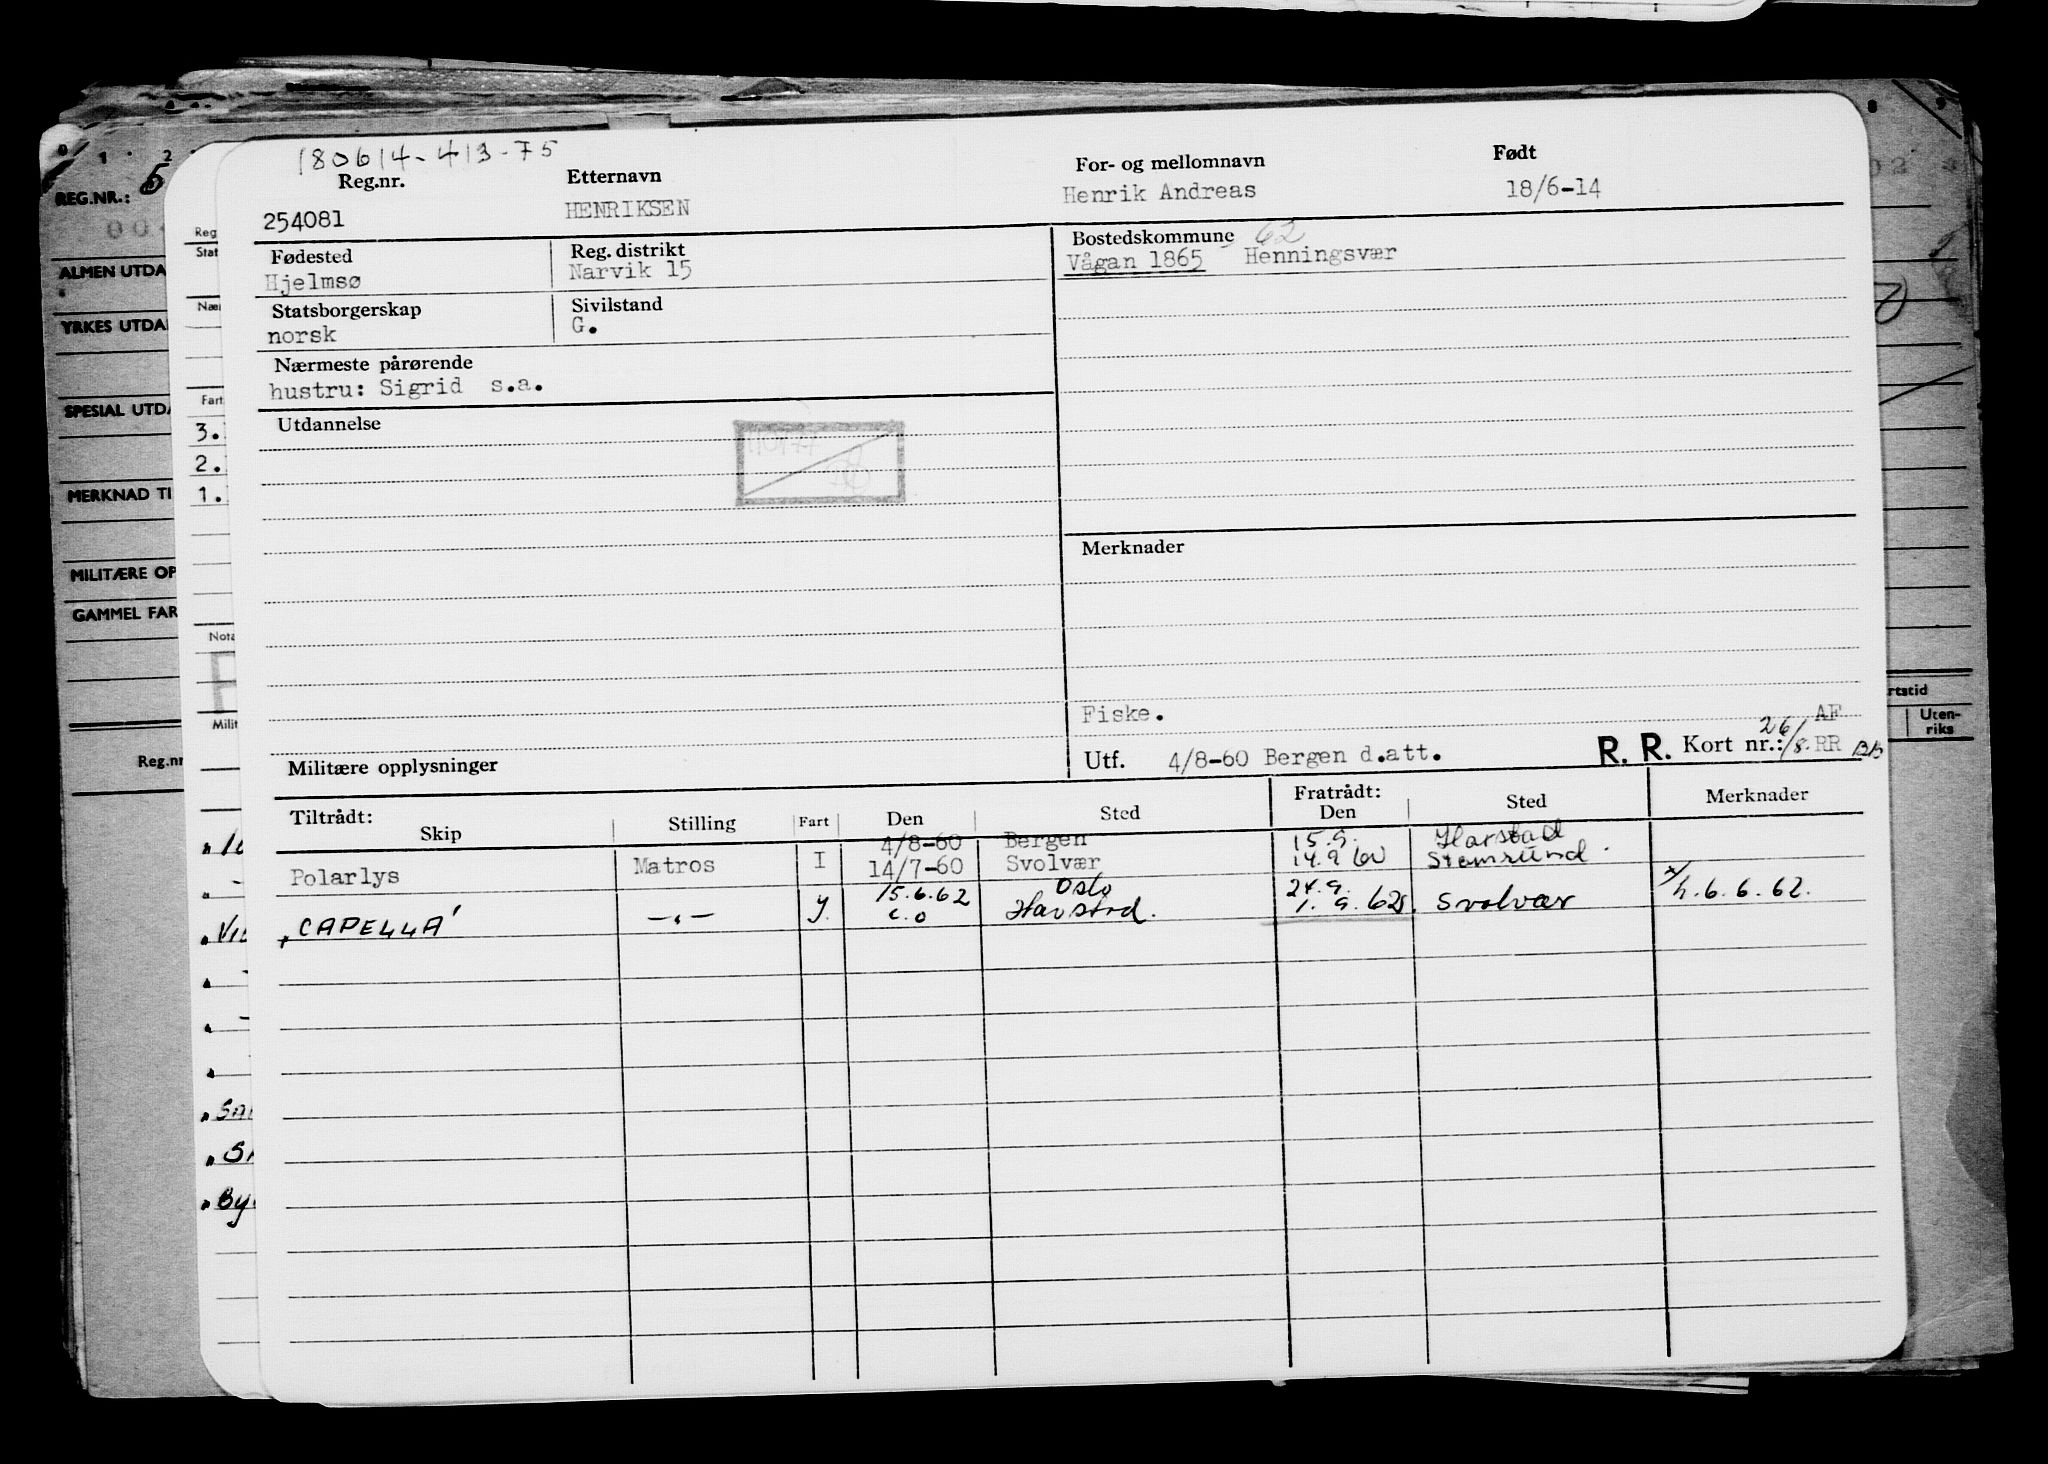 180614-413-75
Reg.nr. Etternavn For- og mellomnavn Født
254081 HENRIKSEN Henrik Andreas 18/6-14
Fødested Reg. distrikt Bostedskommune 62
Hjelmsø Narvik 15 Vågan 1865 Henningsvær
Statsborgerskap Sivilstand
norsk G.
Nærmeste pårørende
hustru: Sigrid s.a.
Utdannelse
Merknader
Fiske.
Utf. 4/8-60 Bergen d.att. R. R. Kort nr.: 26/8. RR AF
Militære opplysninger
Tiltrådt: Skip Stilling Fart Den Sted Fratrådt: Den Sted Merknader
4/8-60 Bergen 15.9. Harstad
Polarlys Matros I 14/7-60 Svolvær 14.9 60
15.6.62 Oslo 24.9.
"CAPELLA" —"— c.o Harstad. 1.9.62 Svolvær x/h.6.6.62.
REG.NR.: 5
ALMEN UTDA
YRKES UTDA
SPESIAL UTDA
MERKNAD TI
MILITÆRE OP
GAMMEL FAR
Reg.nr
Reg
Stat
Nær
Fart
3.
2.
1.
Nota
Milit
SA
By
rtstid
Uten-
riks